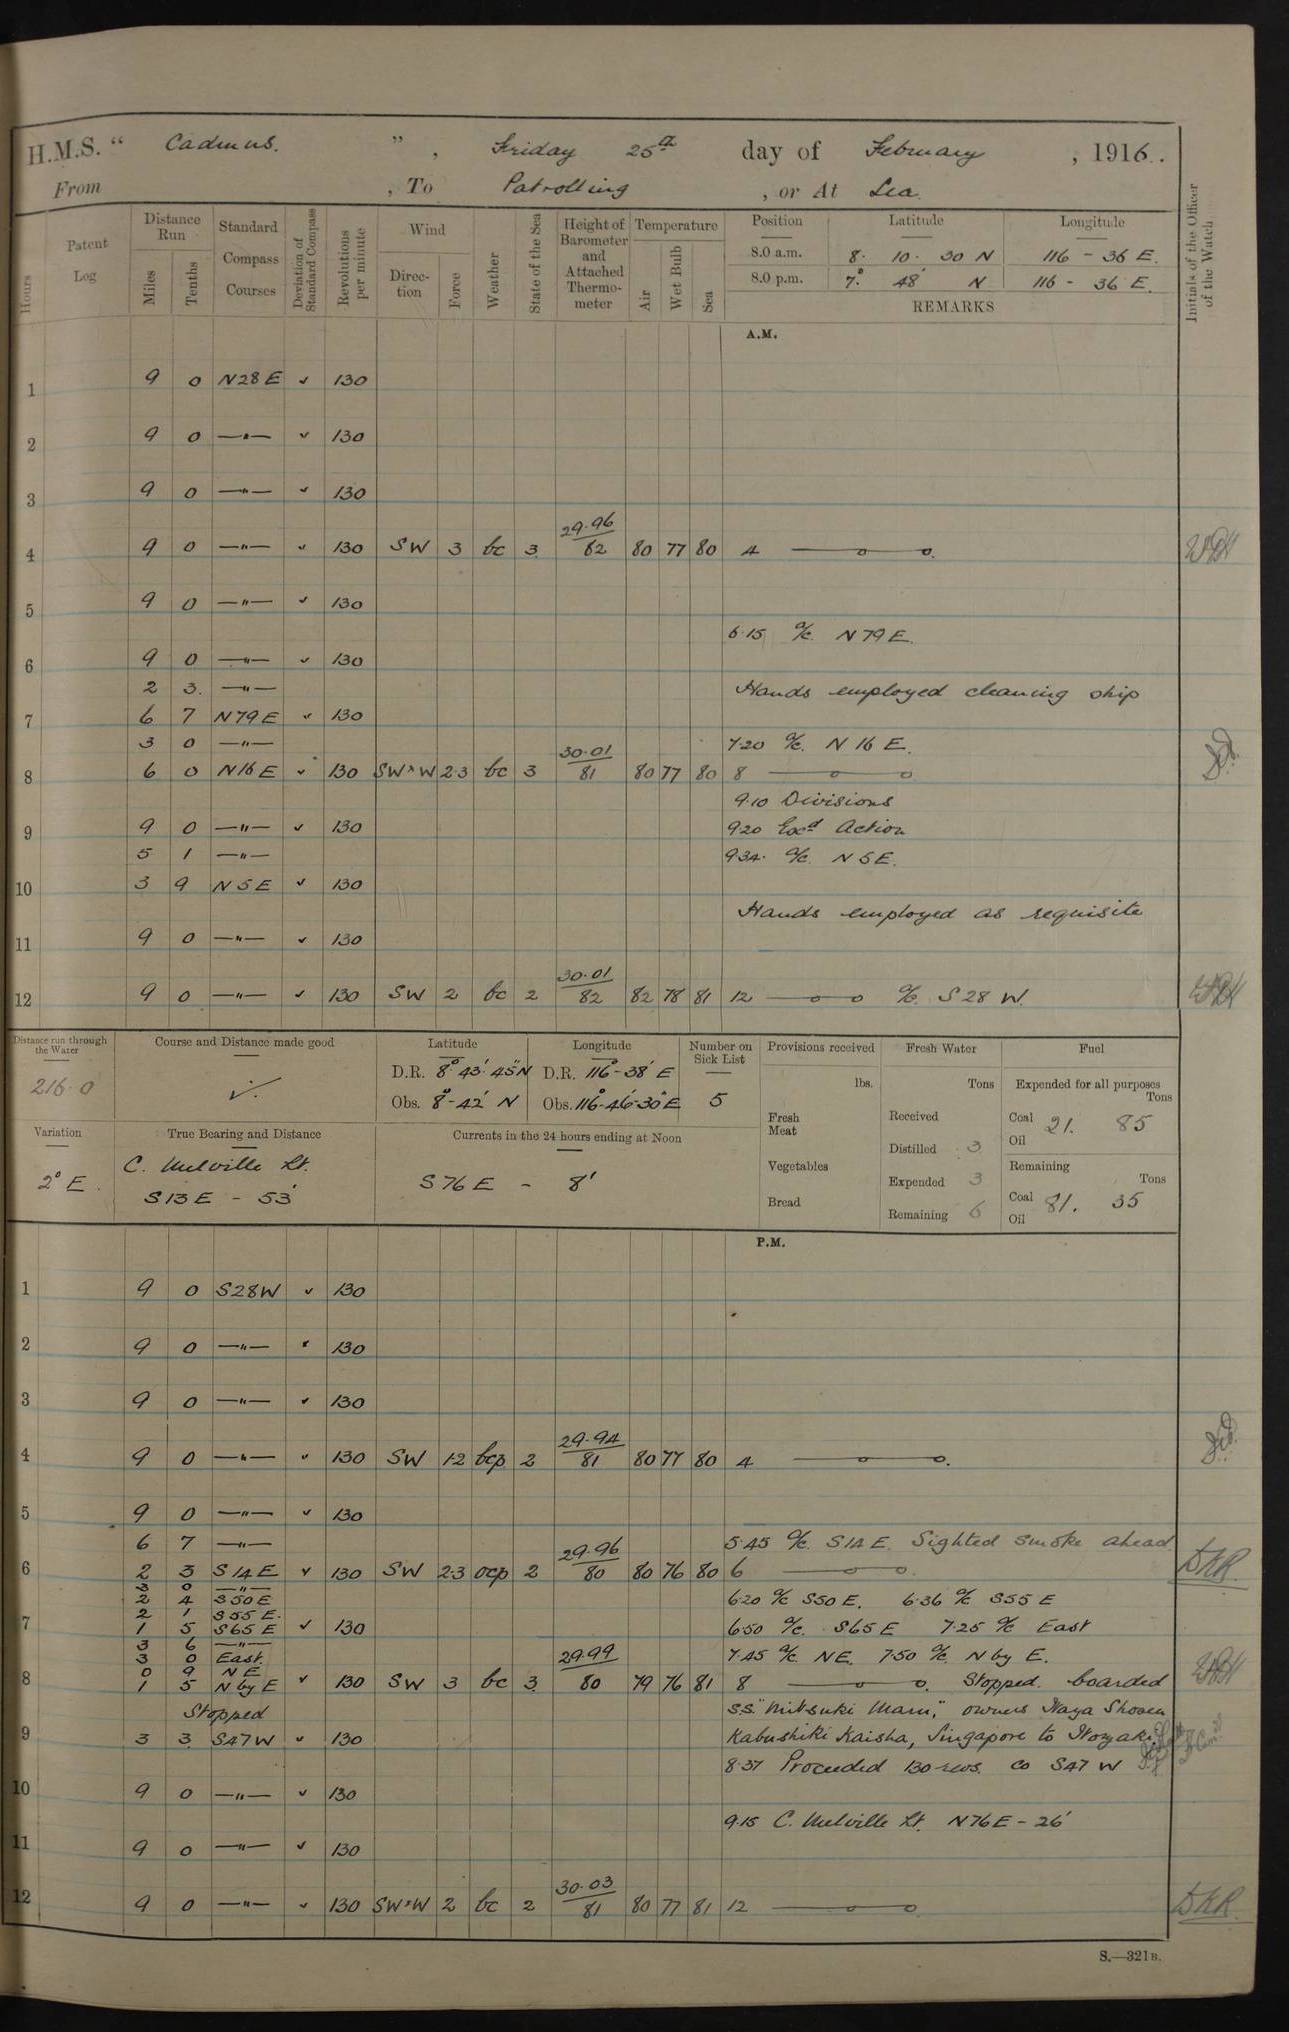 H.M.S. " Cadmus. " , Friday 25th day of February , 1916.
From , To Patrolling , or At Sea
Hours
Patent Log
Distance Run
Miles
Tenths
Standard Compass Courses
Deviation of Standard Compass
Revolutions per minute
Wind
Direction
Force
Weather
State of the Sea
Height of Barometer and Attached Thermometer
Temperature
Air
Wet Bulb
Sea
Position Latitude Longitude
8.0 a.m. 8. 10. 30 N 116 - 36 E.
8.0 p.m. 7° 48' N 116 - 36 E.
REMARKS
Initials of the Officer of the Watch
A.M.
1 9 0 N28E ✓ 130
2 9 0 —"— ✓ 130
3 9 0 —"— ✓ 130
4 9 0 —"— ✓ 130 SW 3 bc 3 29.96/82 80 77 80 4
5 9 0 —"— ✓ 130
6.15 a/c. N79E.
6 9 0 —"— ✓ 130
2 3. —"— Hands employed cleaning ship
7 6 7 N79E ✓ 130
3 0 —"— 7.20 a/c. N16E.
8 6 0 N16E ✓ 130 SW×W 2.3 bc 3 30.01/81 80 77 80 8
9.10 Divisions
9 9 0 —"— ✓ 130 9.20 Exd Action
5 1 —"— 9.34. a/c. N5E.
10 3 9 N5E ✓ 130
Hands employed as requisite
11 9 0 —"— ✓ 130
12 9 0 —"— ✓ 130 SW 2 bc 2 30.01/82 82 78 81 12 a/c. S28W.
Distance run through the Water
216.0
Course and Distance made good
✓.
Latitude
D.R. 8° 43' 45"N
Obs. 8°-42' N
Longitude
D.R. 116°-38' E
Obs. 116°-46'-30"E
Number on Sick List
5
Provisions received
lbs.
Fresh Meat
Vegetables
Bread
Fresh Water
Tons
Received
Distilled 3
Expended 3
Remaining 6
Fuel
Expended for all purposes
Tons
Coal 21. 85
Oil
Remaining
Tons
Coal 81. 35
Oil
Variation
2° E.
True Bearing and Distance
C. Melville Lt.
S13E - 53'
Currents in the 24 hours ending at Noon
S76E - 8'
P.M.
1 9 0 S28W ✓ 130
2 9 0 —"— ✓ 130
3 9 0 —"— ✓ 130
4 9 0 —"— ✓ 130 SW 1.2 bcp 2 29.94/81 80 77 80 4
5 9 0 —"— ✓ 130
6 7 —"— 5.45 a/c. S14E. Sighted smoke ahead
6 2 3 S14E ✓ 130 SW 2.3 ocp 2 29.96/80 80 76 80 6
3 0 —"—
2 4 S50E 6.20 a/c S50E. 6.36 a/c S55E
2 1 S55E.
7 1 5 S65E ✓ 130 6.50 a/c. S65E 7.25 a/c East
3 6 —"—
3 0 East. 7.45 a/c. NE. 7.50 a/c. N by E.
0 9 NE
8 1 5 N by E ✓ 130 SW 3 bc 3 29.99/80 79 76 81 8 Stopped. boarded
Stopped S.S. "Mitsuki Maru," owners Itaya Shosen
9 3 3 S47W ✓ 130 Kabushiki Kaisha, Singapore to
8.37 Proceeded 130 revs. Co S47W
10 9 0 —"— ✓ 130
9.15 C. Melville Lt. N76E - 26'
11 9 0 —"— ✓ 130
12 9 0 —"— ✓ 130 SW×W 2 bc 2 30.03/81 80 77 81 12
S.—321B.